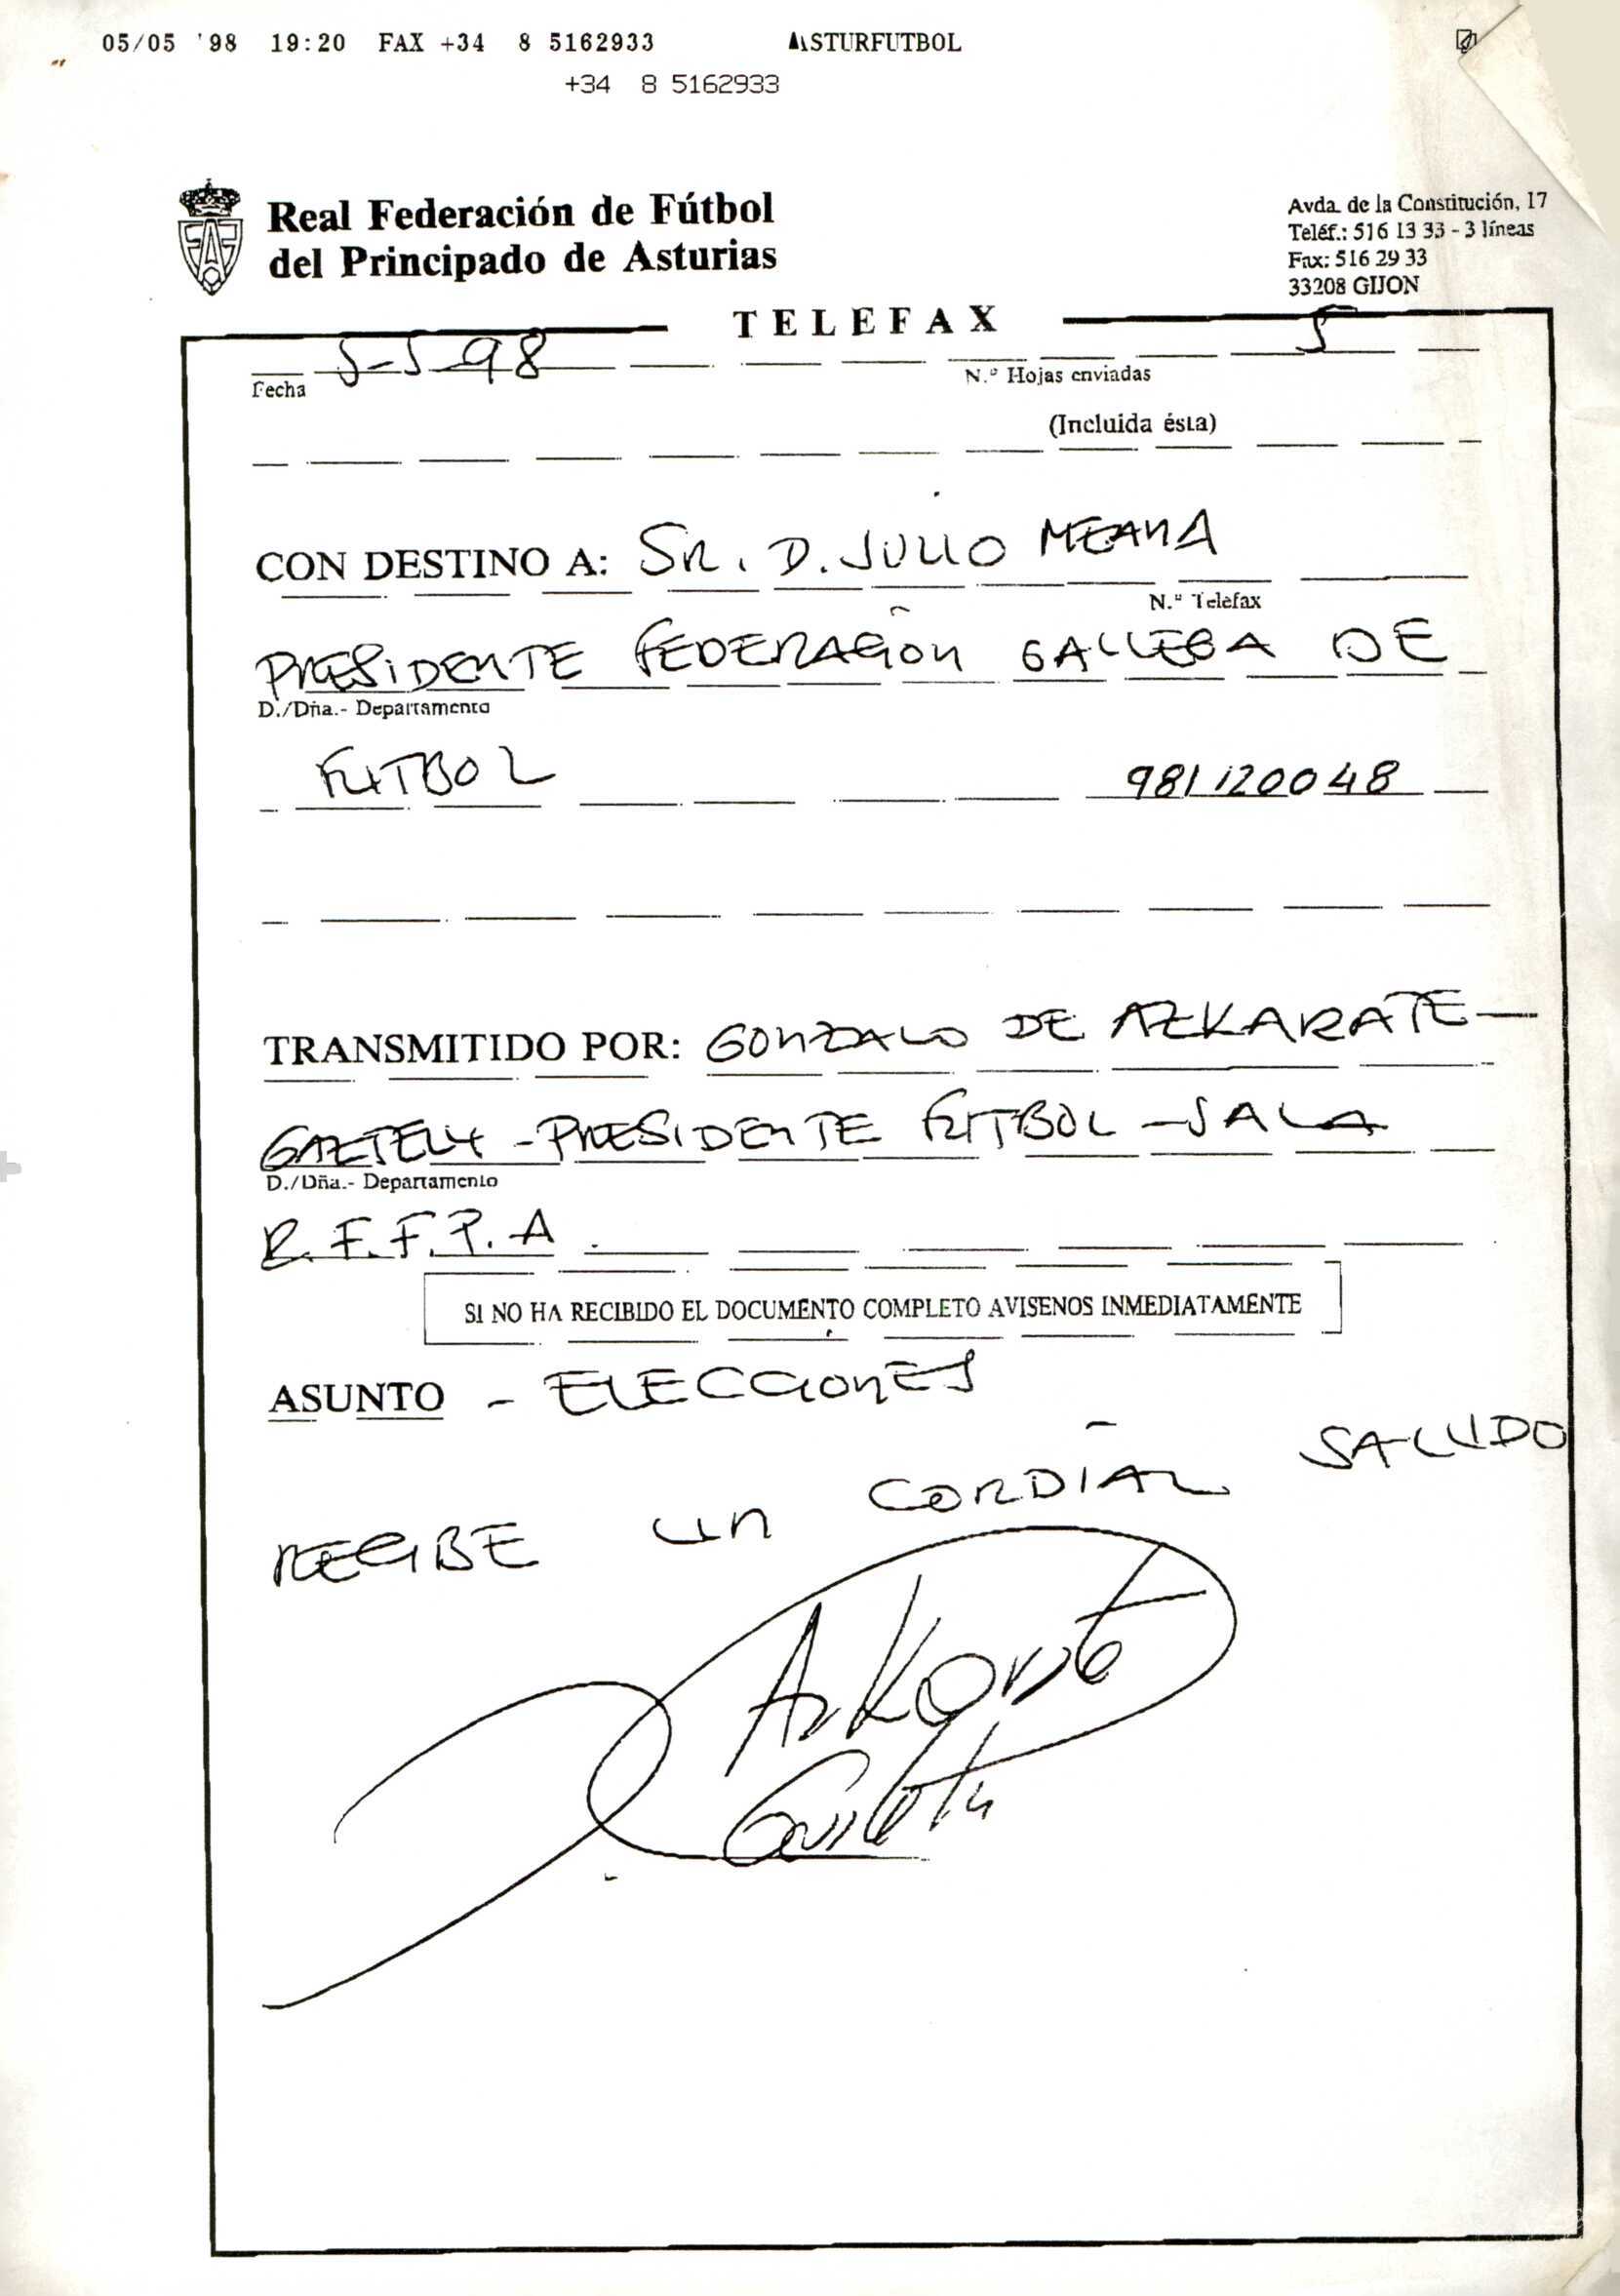 05/05 '98 19:20 FAX +34 8 5162933 ASTURFUTBOL
+34 8 5162933
Real Federación de Fútbol
del Principado de Asturias
Avda. de la Constitución, 17
Teléf.: 516 13 33 - 3 líneas
Fax: 516 29 33
33208 GIJON
TELEFAX
5-5-98 5
Fecha N.º Hojas enviadas
(Incluida ésta)
CON DESTINO A: SR. D. JULIO MEANA
N.º Telefax
PRESIDENTE FEDERACIÓN GALLEGA DE
D./Dña.- Departamento
FUTBOL 981 120048
TRANSMITIDO POR: GONZALO DE AZKARATE-
GAZTELU - PRESIDENTE FUTBOL - SALA
D./Dña.- Departamento
R.F.F.P.A.
SI NO HA RECIBIDO EL DOCUMENTO COMPLETO AVISENOS INMEDIATAMENTE
ASUNTO - ELECCIONES
RECIBE UN CORDIAL SALUDO